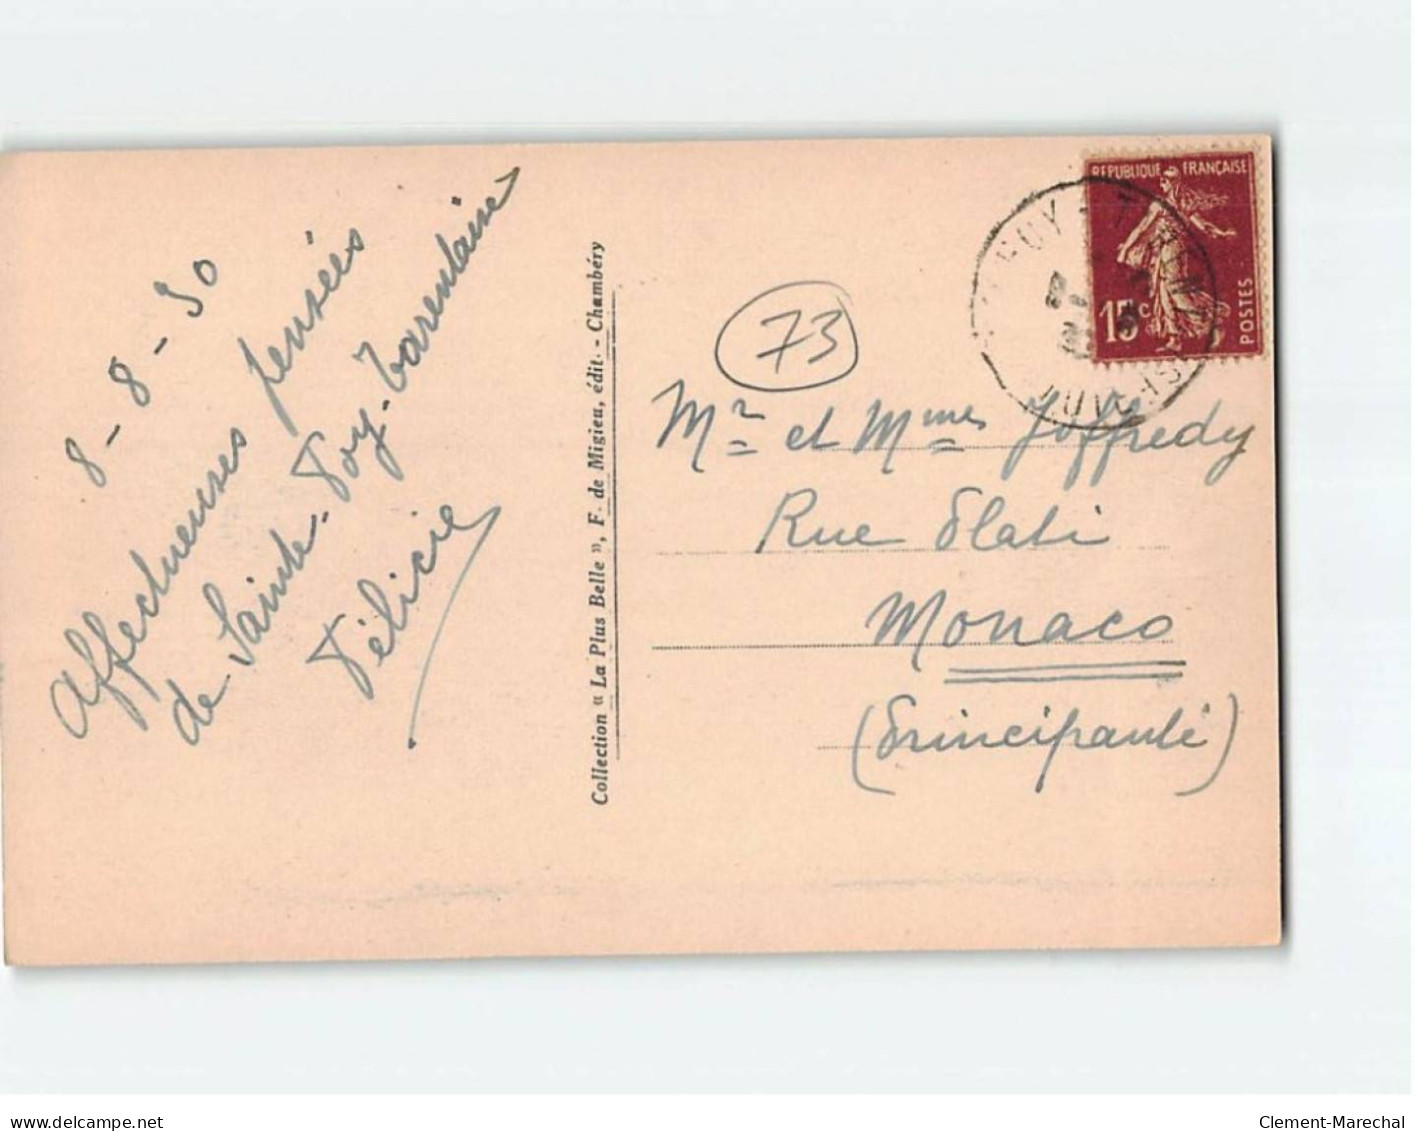 8-8-30
Affectueuses pensées
de Sainte-Foy-Tarentaise
Félicie
Collection « La Plus Belle », F. de Migieu, édit. - Chambéry
73
REPUBLIQUE FRANÇAISE
15c
POSTES
Mr et Mmes Joffredy
Rue Plati
Monaco
(Principauté)
delcampe.net
Clement-Marechal